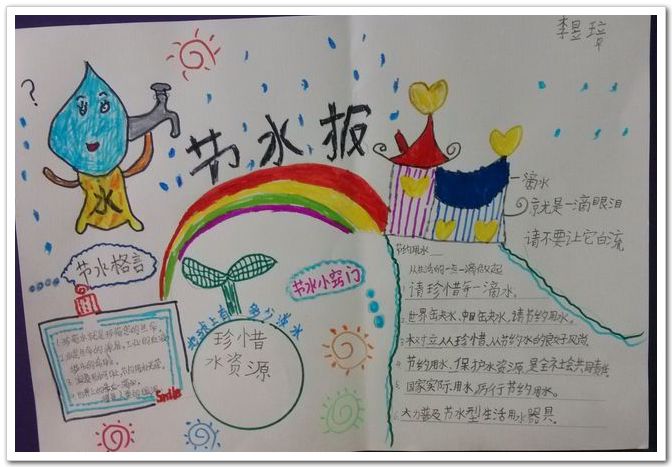 李昱璋
?
水
节水报
一滴水
就是一滴眼泪
请不要让它白流
节水格言
节水小窍门
地球上有多少淡水
珍惜
水资源
Smile
节约用水
从生活的一点一滴做起
请珍惜每一滴水。
世界缺水,中国缺水,请节约用水。
树立从珍惜,从节约水的良好风尚
节约用水、保护水资源,是全社会共同责任
国家实际用水,厉行节约用水。
大力普及节水型生活用水器具。